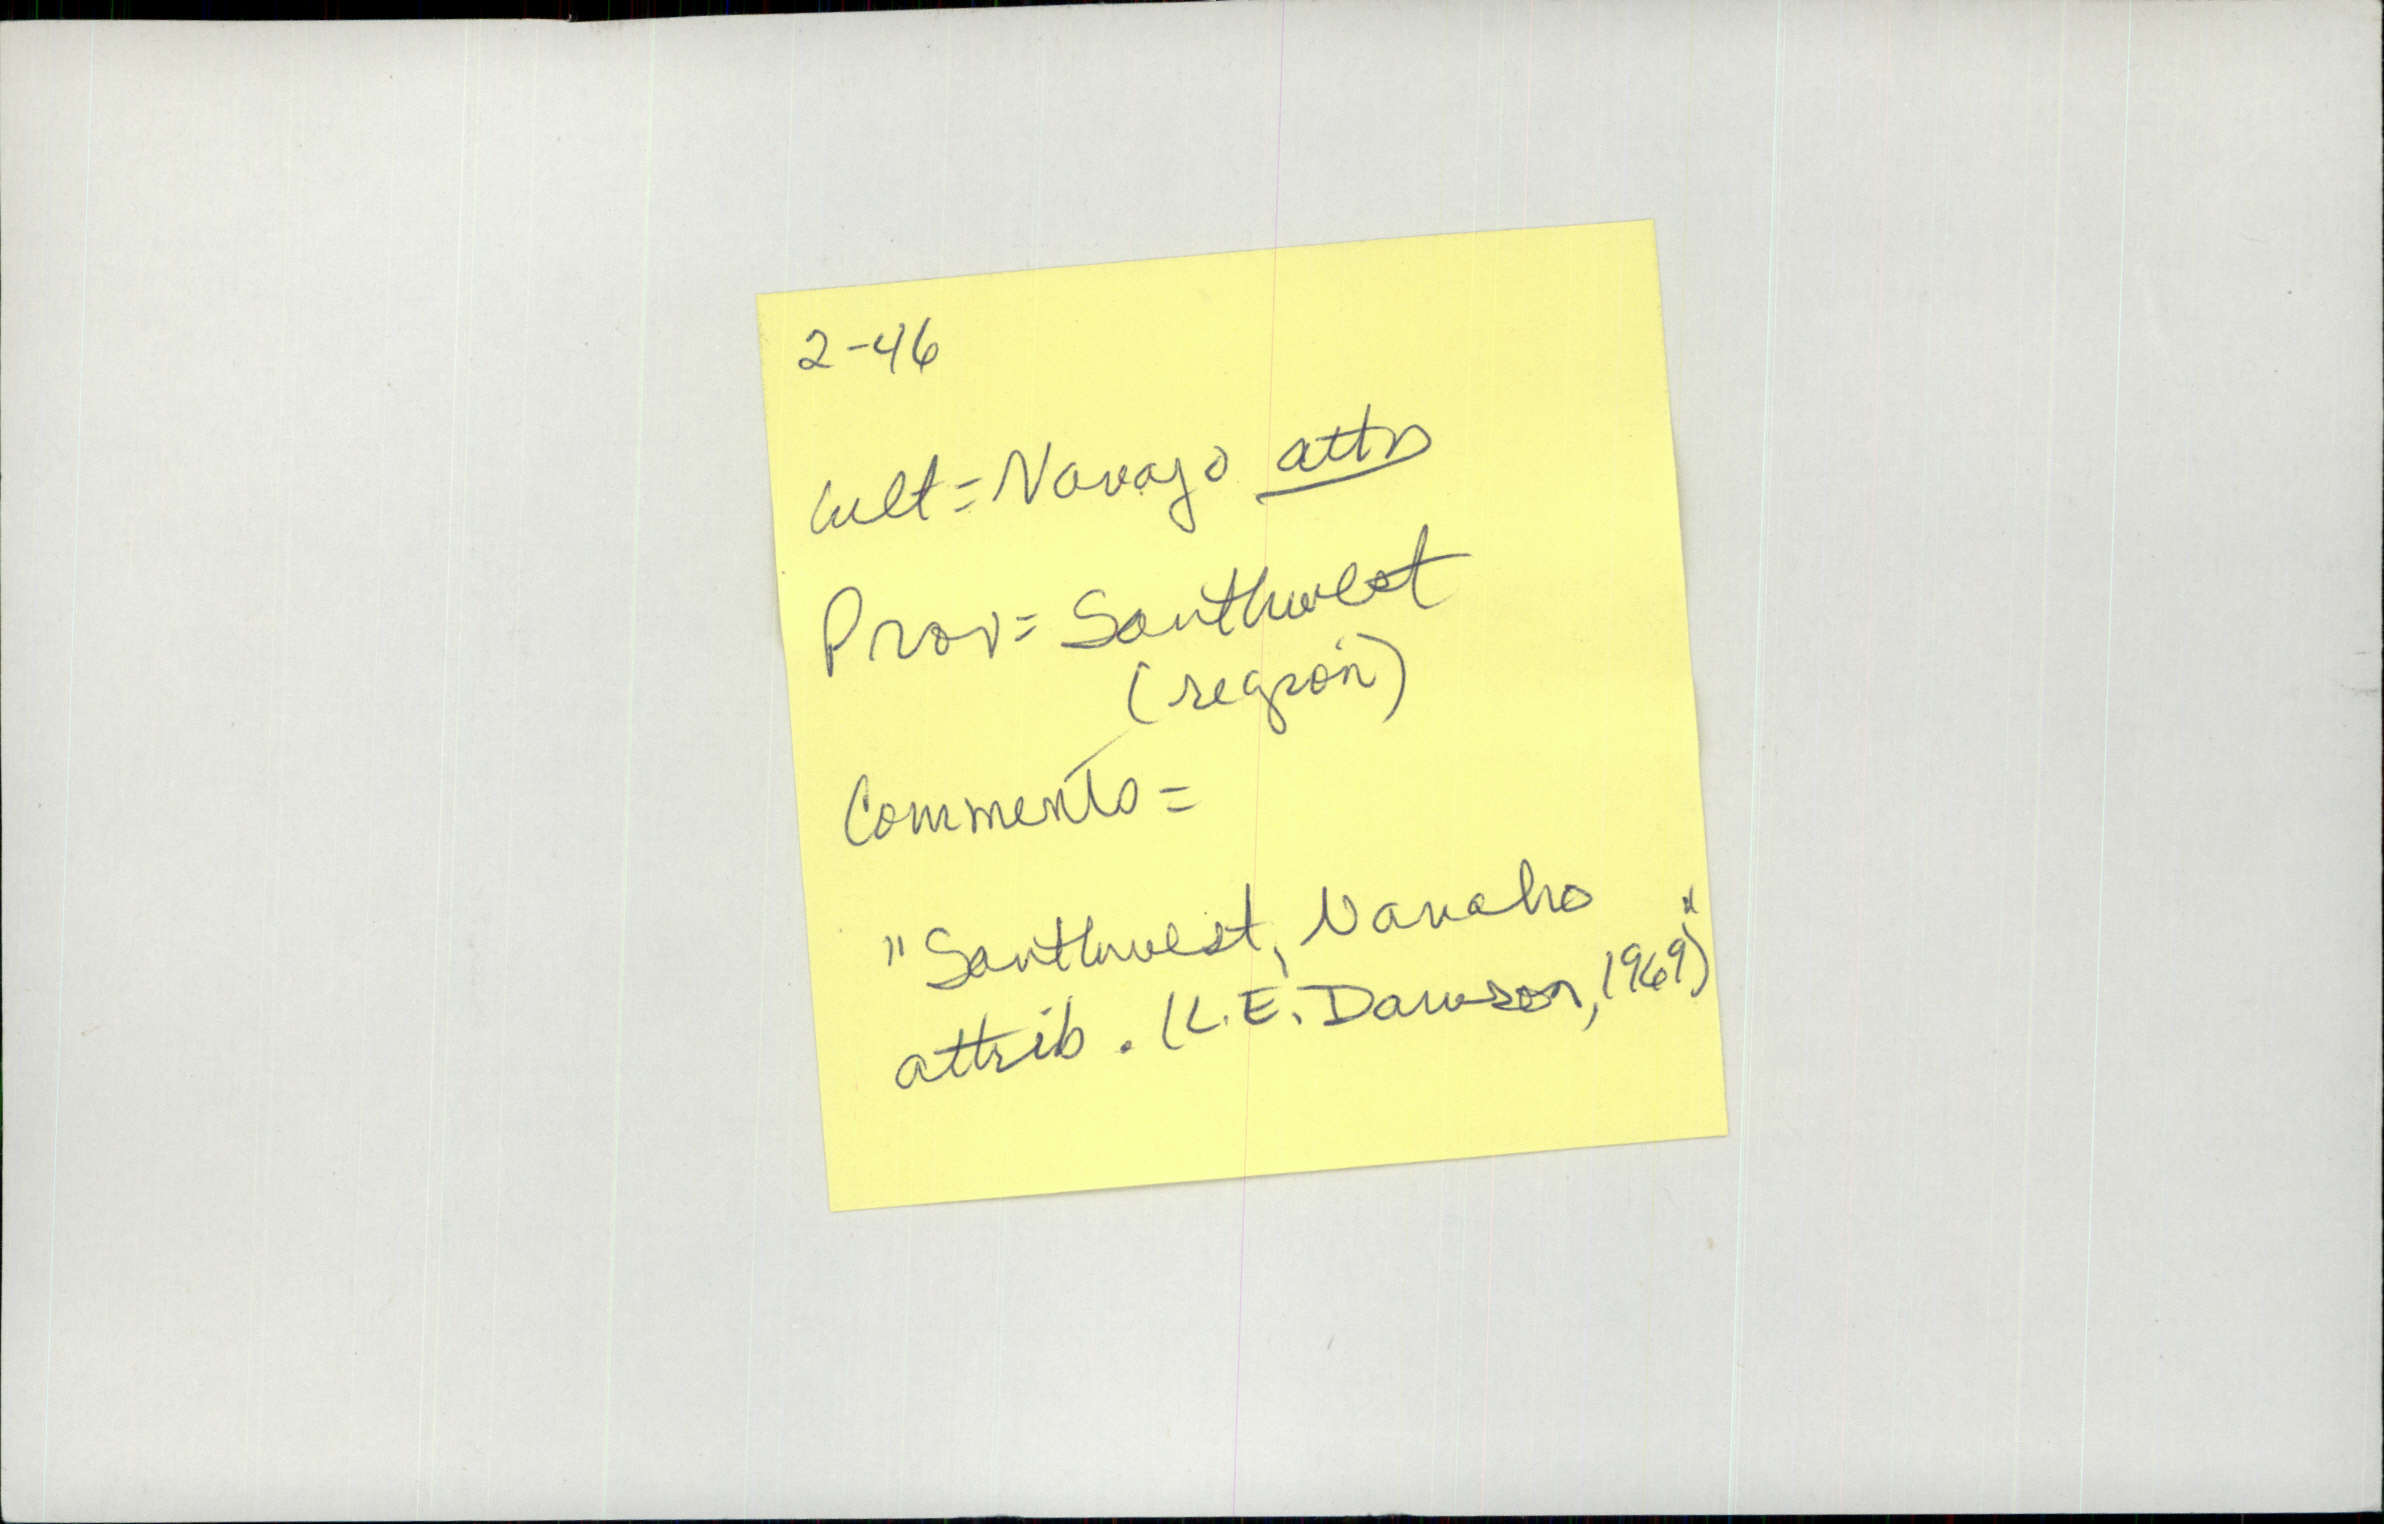 2-46
Cult = Navajo attrb
Prov = Southwest
(region)
Comments =
"Southwest, Navaho
attrib. (L.E. Dawson, 1969)"